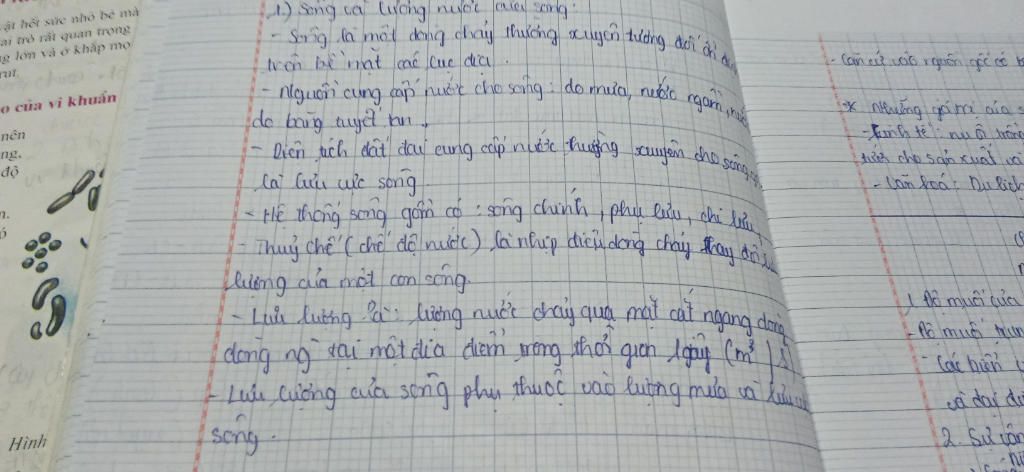 ật hết sức nhỏ bé mà
ai trò rất quan trọng
g lớn và ở khắp mọ
rut.
o của vi khuẩn
nên
ng.
độ
n.
ó
Hình
1) Sông và lượng nước của sông:
- Sông là một dòng chảy thường xuyên tương đối ổn
trên bề mặt các lục địa.
- Nguồn cung cấp nước cho sông: do mưa, nước ngầm,
do băng tuyết tan.
- Diện tích đất đai cung cấp nước thường xuyên cho sông
là lưu vực sông
- Hệ thống sông gồm có: sông chính, phụ lưu, chi lưu
- Thuỷ chế (chế độ nước) là nhịp điệu dòng chảy thay đổi
lượng của một con sông.
- Lưu lượng là: lượng nước chảy qua mặt cắt ngang dòng
dòng ng tại một địa điểm trong thời gian 1 giây (m³/s
- Lưu lượng của sông phụ thuộc vào lượng mưa và lưu
sông.
- Căn cứ vào nguồn gốc có
* Những giá trị của s
- Kinh tế: nuôi trồn
cho sản xuất và
- Văn hoá: Du lịch
1, Độ muối của
- Độ muối trun
- Các biển
và đại dư
2. Sự vận